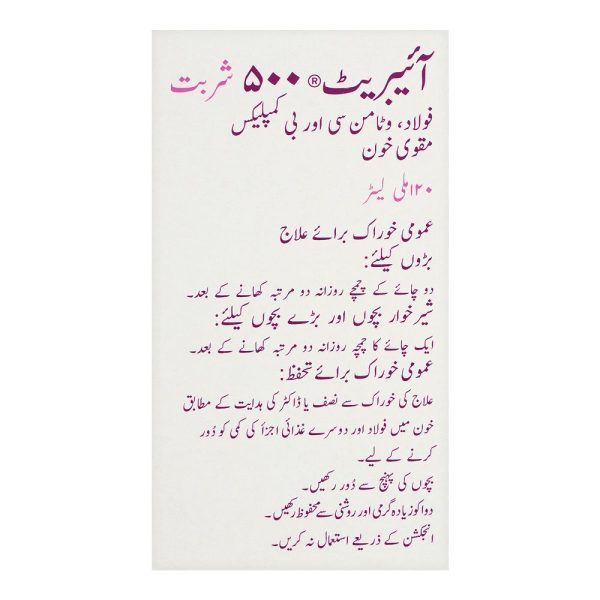 آئیبریٹ® ۵۰۰ شربت
فولاد، وٹامن سی اور بی کمپلیکس
مقوی خون
۱۲۰ ملی لیٹر
عمومی خوراک برائے علاج
بڑوں کیلئے:
دو چائے کے چمچے روزانہ دو مرتبہ کھانے کے بعد۔
شیرخوار بچوں اور بڑے بچوں کیلئے:
ایک چائے کا چمچہ روزانہ دو مرتبہ کھانے کے بعد۔
عمومی خوراک برائے تحفظ:
علاج کی خوراک سے نصف یا ڈاکٹر کی ہدایت کے مطابق
خون میں فولاد اور دوسرے غذائی اجزأ کی کمی کو دُور
کرنے کے لیے۔
بچوں کی پہنچ سے دُور رکھیں۔
دوا کو زیادہ گرمی اور روشنی سے محفوظ رکھیں۔
انجکشن کے ذریعے استعمال نہ کریں۔